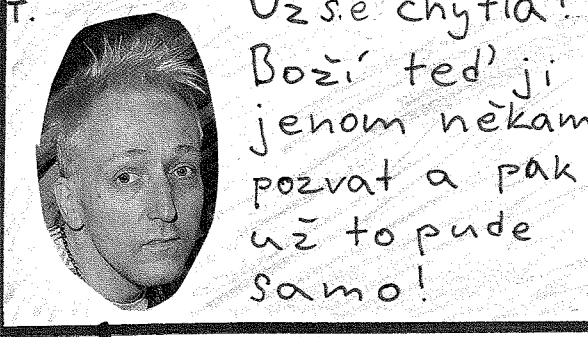 T.
Už se chytla!
Boží teď ji
jenom někam
pozvat a pak
už to pude
samo!